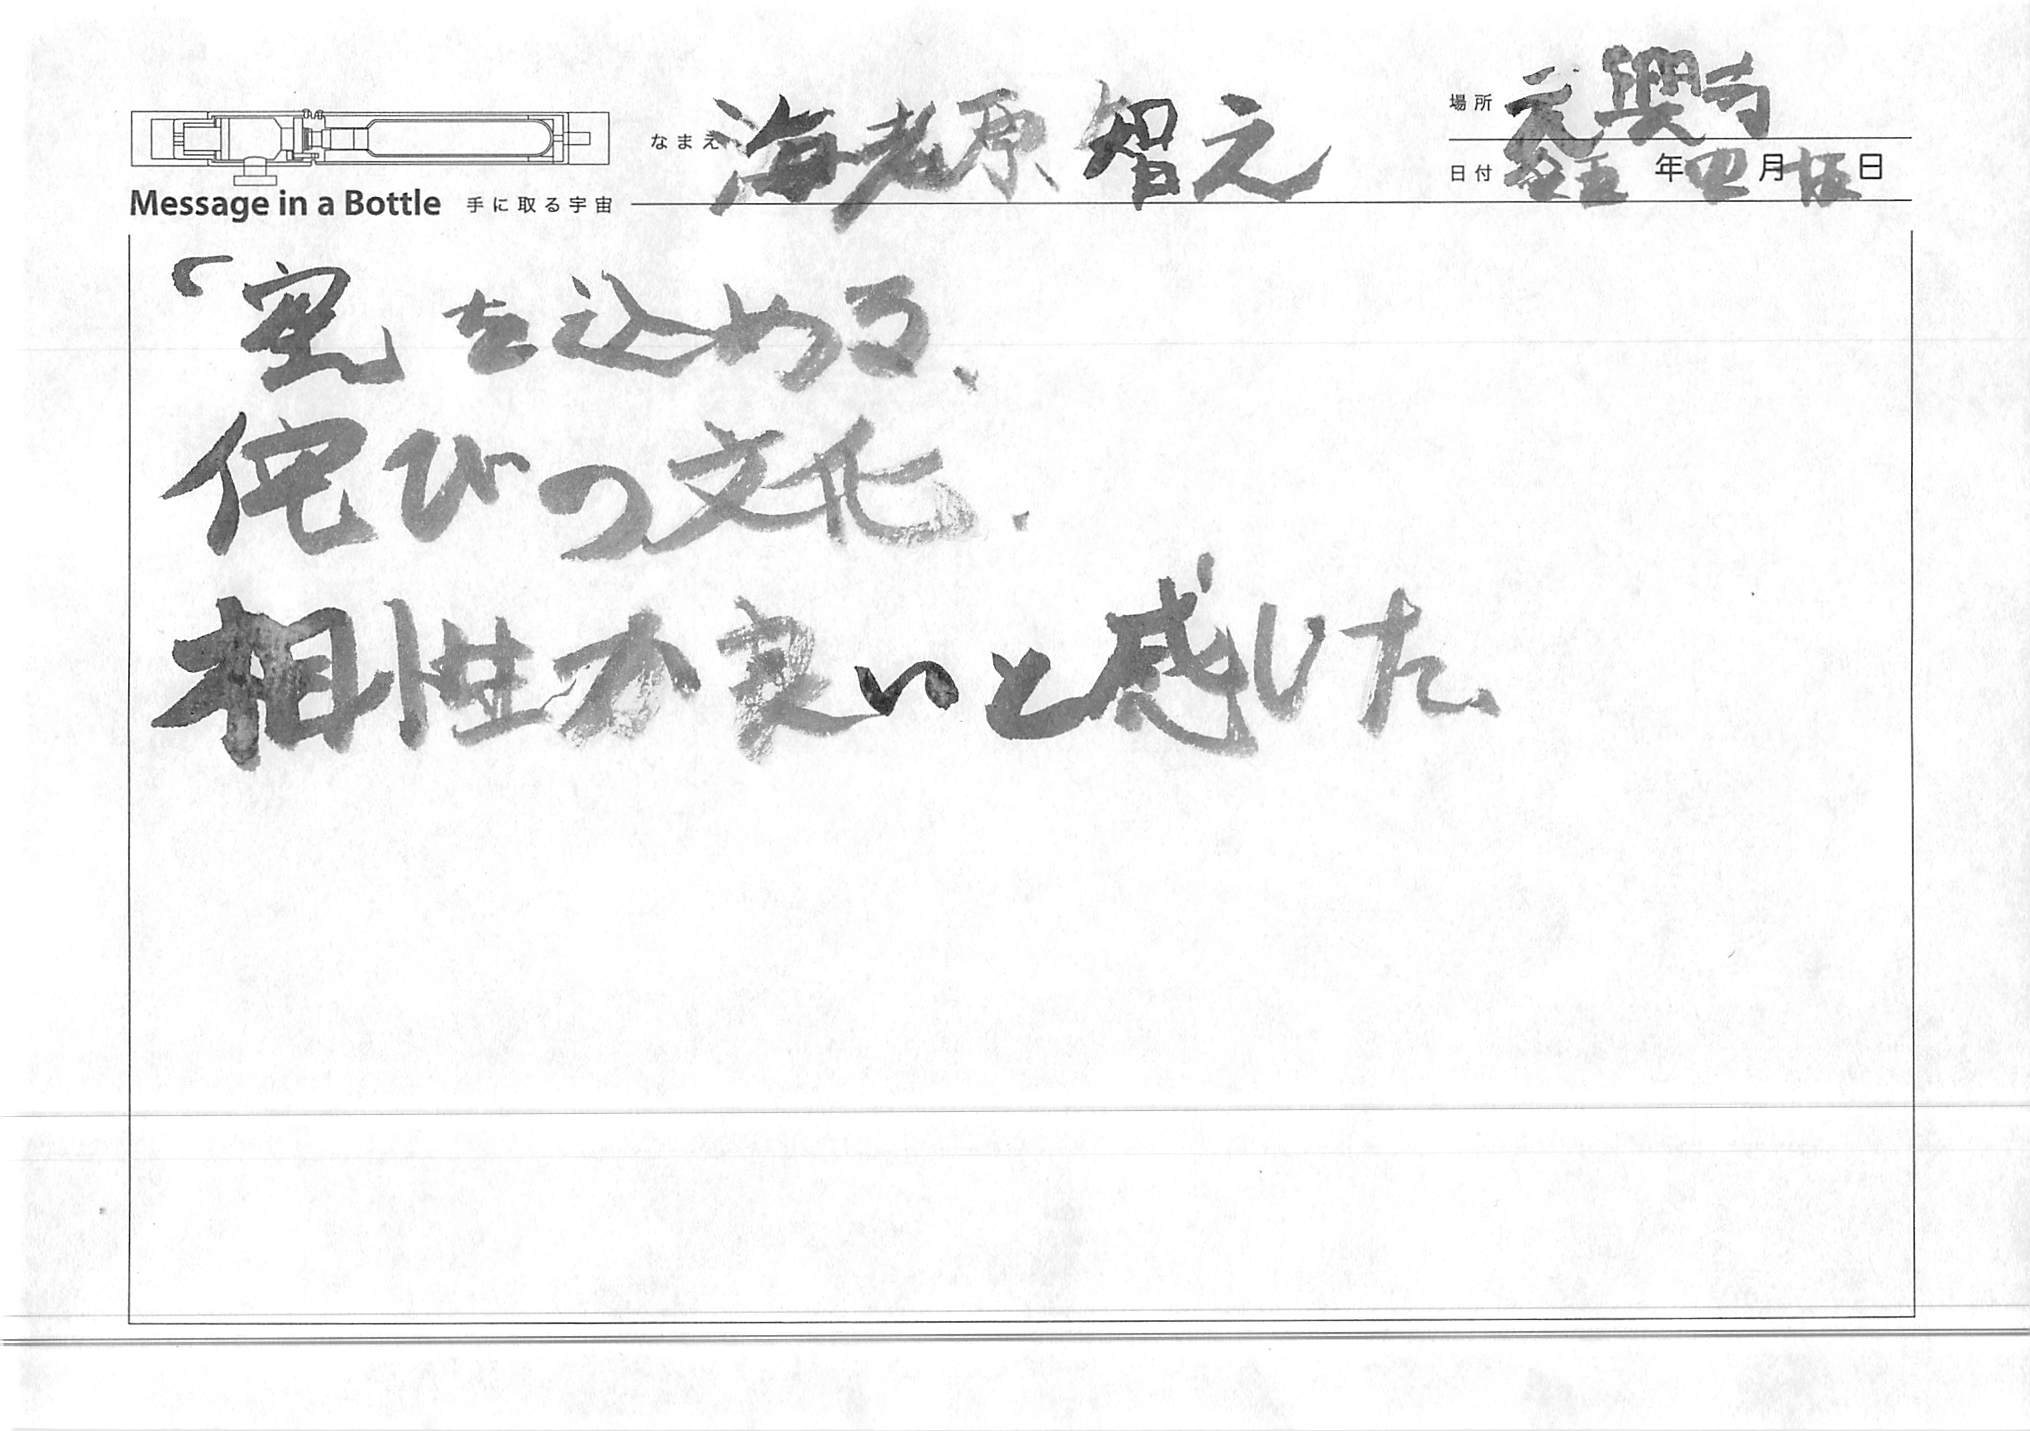 なまえ 海老原 智之
場所 元興寺
日付 弐五 年 四 月 十五 日
Message in a Bottle 手に取る宇宙
「空を込める、
侘びの文化.
相性が良いと感じた、